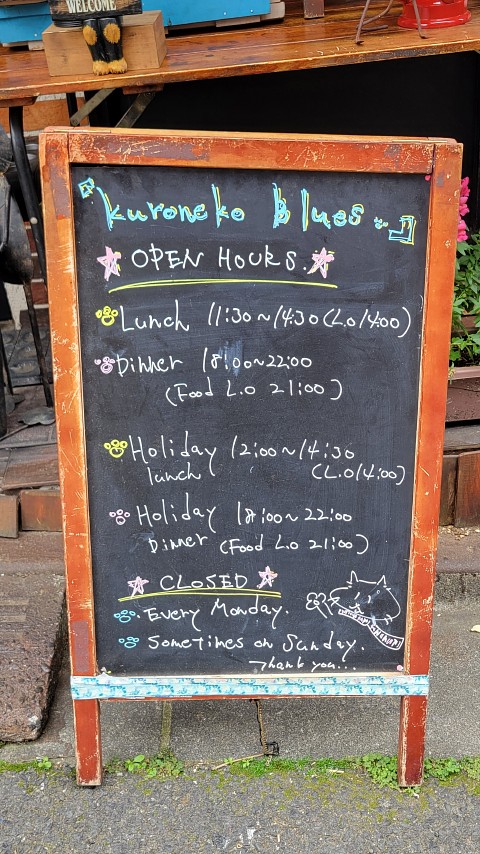 WELCOME
『Kuroneko Blues』
OPEN HOURS.
Lunch 11:30~14:30(L.O14:00)
Dinner 18:00~22:00
(Food L.O 21:00)
Holiday 12:00~14:30
lunch (L.O14:00)
Holiday 18:00~22:00
Dinner (Food L.O 21:00)
CLOSED
Every Monday.
Sometimes on Sunday.
Thank you...